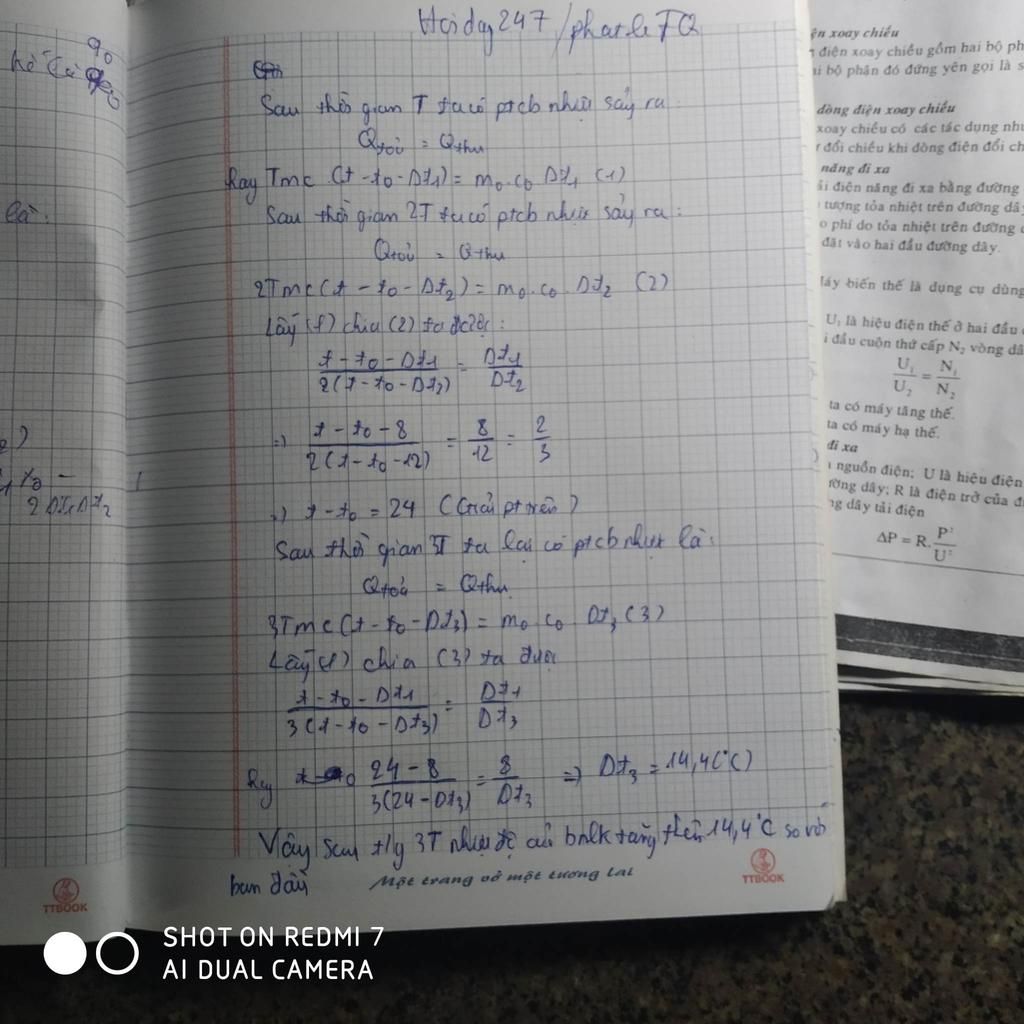 Hoiday247/phatleTQ
90
Sau thời gian T ta có ptcb nhiệt sảy ra
Qtoả = Qthu
hay Tmc (t - t0 - Dt1) = m0.c0 Dt1 (1)
Sau thời gian 2T ta có ptcb nhiệt sảy ra:
Qtoả = Qthu
2Tmc(t - t0 - Dt2) = m0.c0 Dt2 (2)
Lấy (1) chia (2) ta được:
t - t0 - Dt1 / 2(t - t0 - Dt2) = Dt1 / Dt2
=) t - t0 - 8 / 2(t - t0 - 12) = 8 / 12 = 2 / 3
=) t - t0 = 24 (Giải pt trên)
Sau thời gian 3T ta lại có ptcb nhiệt là:
Qtoả = Qthu
3Tmc(t - t0 - Dt3) = m0 c0 Dt3 (3)
Lấy (1) chia (3) ta được
t - t0 - Dt1 / 3(t - t0 - Dt3) = Dt1 / Dt3
Hay 24 - 8 / 3(24 - Dt3) = 8 / Dt3 =) Dt3 = 14,4(°C)
Vậy sau t/g 3T nhiệt độ của bnlk tăng thêm 14,4°C so với
ban đầu
Một trang vở một tương lai
TTBOOK
là:
2 Dt1 Dt2
TTBOOK
điện xoay chiều
điện xoay chiều gồm hai bộ
hai bộ phận đó đứng yên gọi là
dòng điện xoay chiều
xoay chiều có các tác dụng
đổi chiều khi dòng điện đổi
năng đi xa
điện năng đi xa bằng đường
tượng tỏa nhiệt trên đường
phí do tỏa nhiệt trên đường
đặt vào hai đầu đường dây.
Máy biến thế là dụng cụ dùng
U1 là hiệu điện thế ở hai đầu
đầu cuộn thứ cấp N2 vòng
U1 / U2 = N1 / N2
ta có máy tăng thế.
ta có máy hạ thế.
đi xa
nguồn điện; U là hiệu điện
đường dây; R là điện trở của
dây tải điện
ΔP = R. P² / U²
SHOT ON REDMI 7
AI DUAL CAMERA